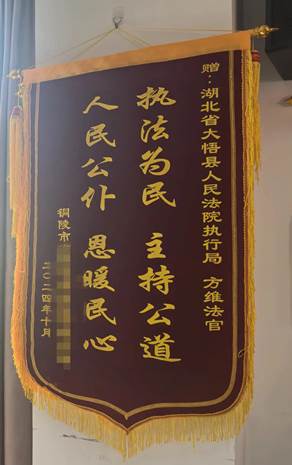 赠：湖北省大悟县人民法院执行局 方维法官
执法为民 主持公道
人民公仆 恩暖民心
铜陵市
二〇二四年十月